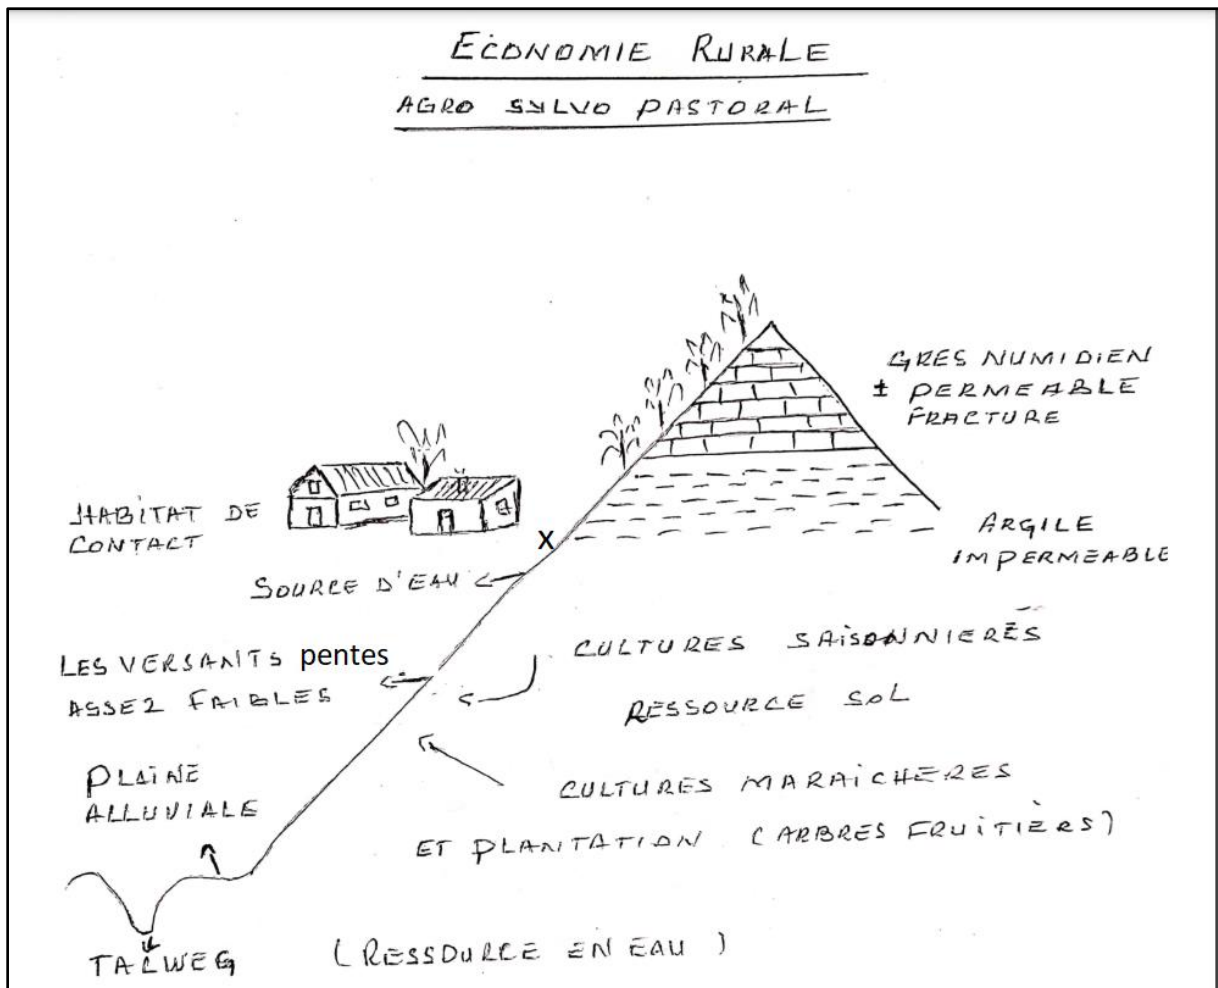 ECONOMIE RURALE
AGRO SYLVO PASTORAL
GRES NUMIDIEN
± PERMEABLE
FRACTURE
HABITAT DE
CONTACT
X
ARGILE
IMPERMEABLE
SOURCE D'EAU
LES VERSANTS pentes
ASSEZ FAIBLES
CULTURES SAISONNIERES
RESSOURCE SOL
PLAINE
ALLUVIALE
CULTURES MARAICHERES
ET PLANTATION (ARBRES FRUITIERS)
TALWEG (RESSOURCE EN EAU)